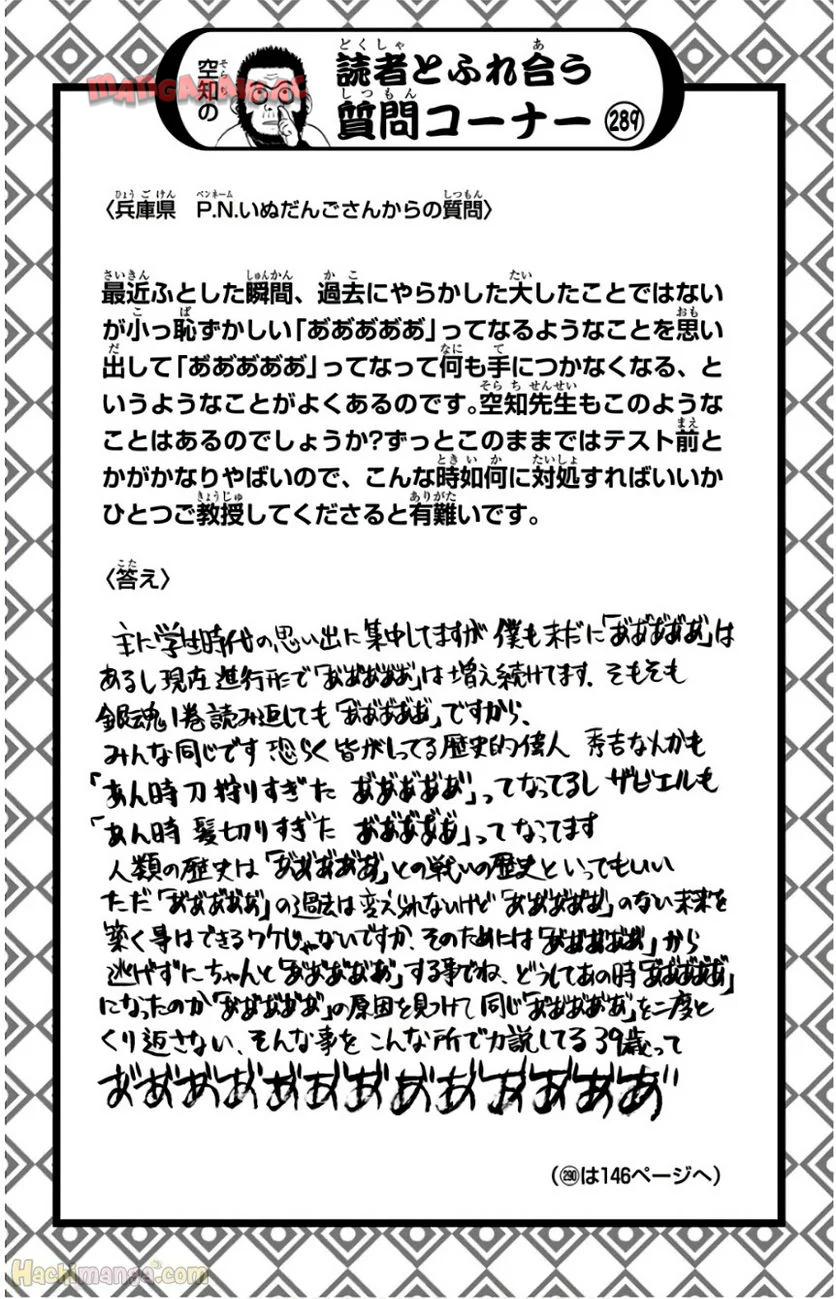 空知の
読者とふれ合う
質問コーナー 289
〈兵庫県　P.N.いぬだんごさんからの質問〉
最近ふとした瞬間、過去にやらかした大したことではない
が小っ恥ずかしい「あ゙あ゙あ゙あ゙あ゙」ってなるようなことを思い
出して「あ゙あ゙あ゙あ゙あ゙」ってなって何も手につかなくなる、と
いうようなことがよくあるのです。空知先生もこのような
ことはあるのでしょうか?ずっとこのままではテスト前と
かがかなりやばいので、こんな時如何に対処すればいいか
ひとつご教授してくださると有難いです。
〈答え〉
主に学生時代の思い出に集中してますが 僕も未だに「あ゙あ゙あ゙あ゙あ゙」は
あるし現在進行形で「あ゙あ゙あ゙あ゙あ゙」は増え続けてます、そもそも
銀魂1巻読み返しても「あ゙あ゙あ゙あ゙あ゙」ですから、
みんな同じです 恐らく皆がしってる歴史的偉人 秀吉なんかも
「あん時刀狩りすぎた あ゙あ゙あ゙あ゙あ゙」ってなってるし ザビエルも
「あん時髪切りすぎた あ゙あ゙あ゙あ゙あ゙」ってなってます
人類の歴史は「あ゙あ゙あ゙あ゙あ゙」との戦いの歴史といってもいい
ただ「あ゙あ゙あ゙あ゙あ゙」の過去は変えられないけど「あ゙あ゙あ゙あ゙あ゙」のない未来を
築く事はできるワケじゃないですか、そのためには「あ゙あ゙あ゙あ゙あ゙」から
逃げずにちゃんと「あ゙あ゙あ゙あ゙あ゙」する事でね、どうしてあの時「あ゙あ゙あ゙あ゙あ゙」
になったのか「あ゙あ゙あ゙あ゙あ゙」の原因を見つけて同じ「あ゙あ゙あ゙あ゙あ゙」を二度と
くり返さない、そんな事をこんな所で力説してる39歳って
あ゙あ゙あ゙あ゙あ゙あ゙あ゙あ゙あ゙あ゙あ゙あ゙あ゙あ゙
(290は146ページへ)
Hachimanga.com